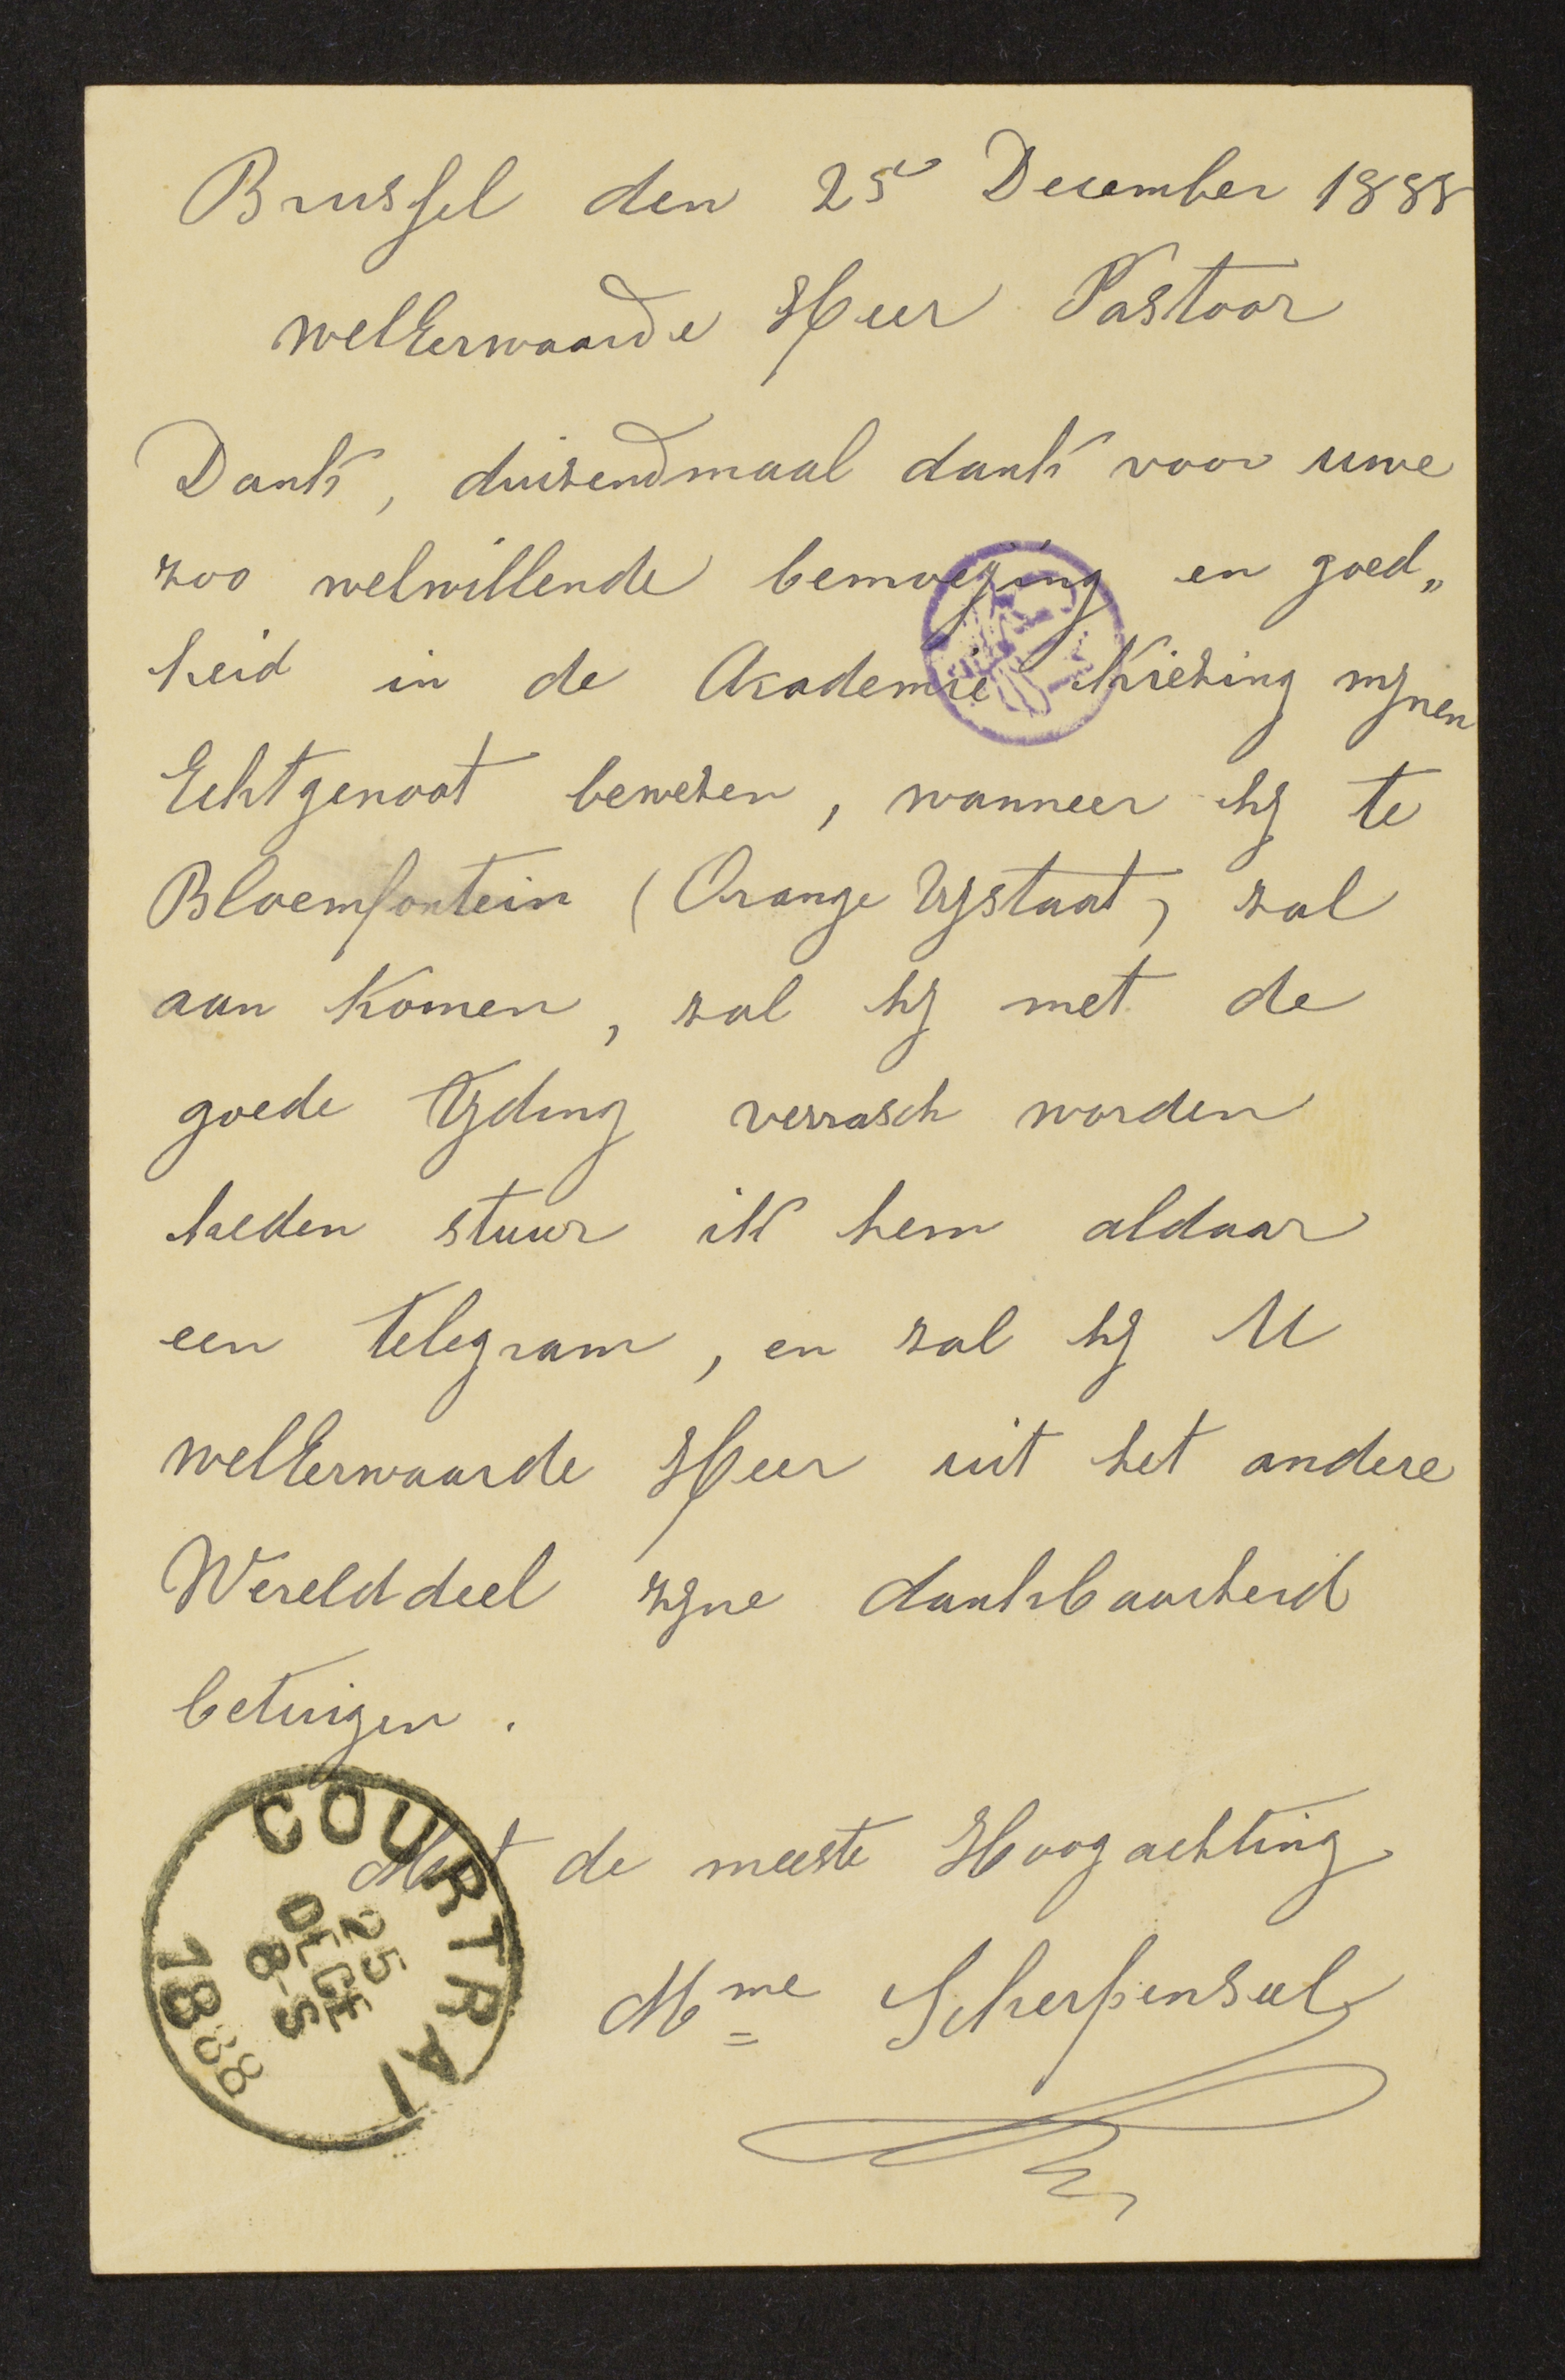 Brussel den 25e December 1888
welEerwaarde Heer Pastoor
Dank, duizendmaal dank voor uwe
zoo welwillende bemoeging en goed„
heid in de Akademie Kiezing mynen
Echtgenoot bewezen, wanneer hy te
Bloemfontein (Orange Vrystaat) zal
aan komen, zal hy met de
goede Tyding verrasch worden
heden stuur ik hem aldaar
een telegram, en zal hy U
welEerwaarde Heer uit het andere
Werelddeel zyne dankbaarheid
betuigen.
Met de meeste Hoogachting
Mme Scherpenzeel
COURTRAI
25
DECE
8-S
1888